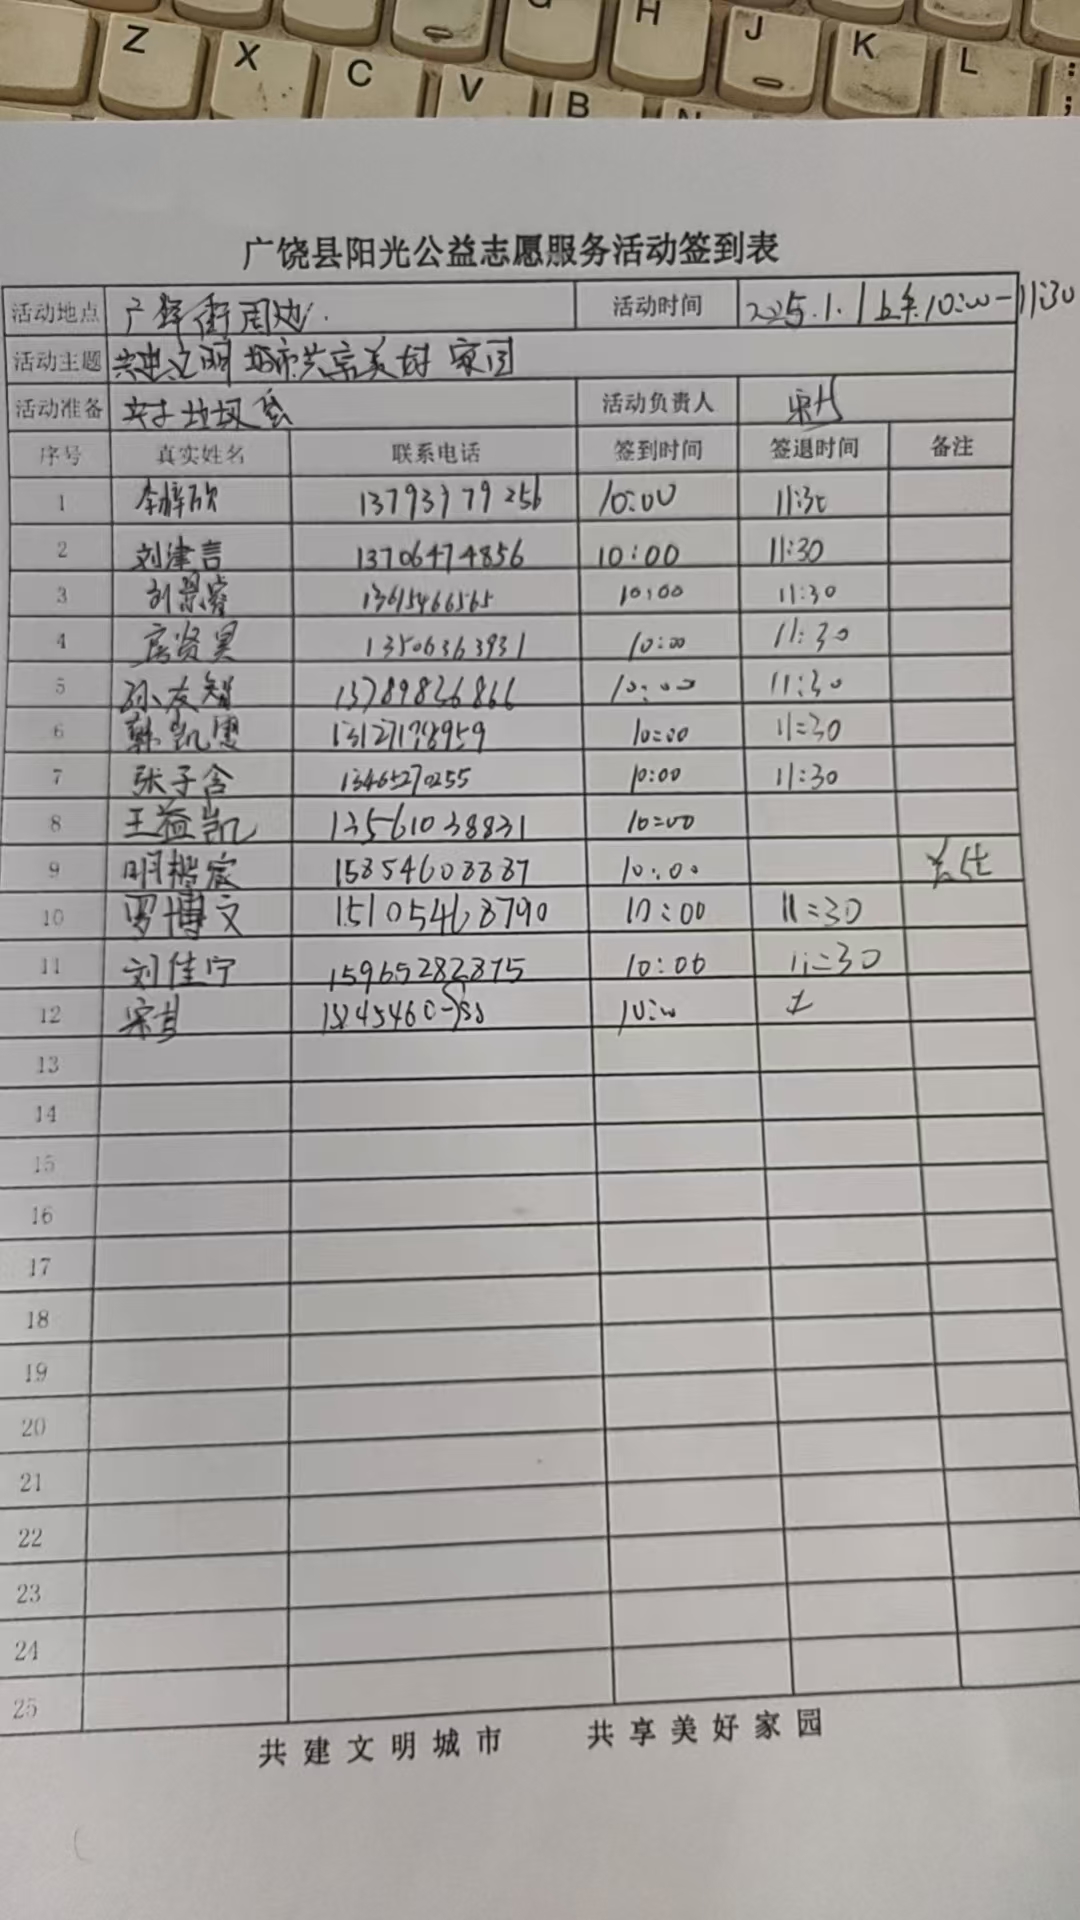 Z X C V B N G H J K L ;
广饶县阳光公益志愿服务活动签到表
活动地点 街周边. 活动时间 2025.1.1 上午10:00-11:30
活动主题 共建文明城市共享美好家园
活动准备 垃圾袋 活动负责人
序号 真实姓名 联系电话 签到时间 签退时间 备注
1 李梓欣 13793979256 10:00 11:30
2 刘津言 13706474856 10:00 11:30
3 13615466565 10:00 11:30
4 房贤昊 13506363931 10:00 11:30
5 孙友智 13789836866 10:00 11:30
6 韩凯恩 10:00 11:30
7 张子含 13465270255 10:00 11:30
8 王益凯 13561038831 10:00
9 明楷宸 15854603887 10:00
10 罗博文 15105468790 10:00 11:30
11 刘佳宁 15965282875 10:00 11:30
12 10:00
13
14
15
16
17
18
19
20
21
22
23
24
25
共建文明城市 共享美好家园